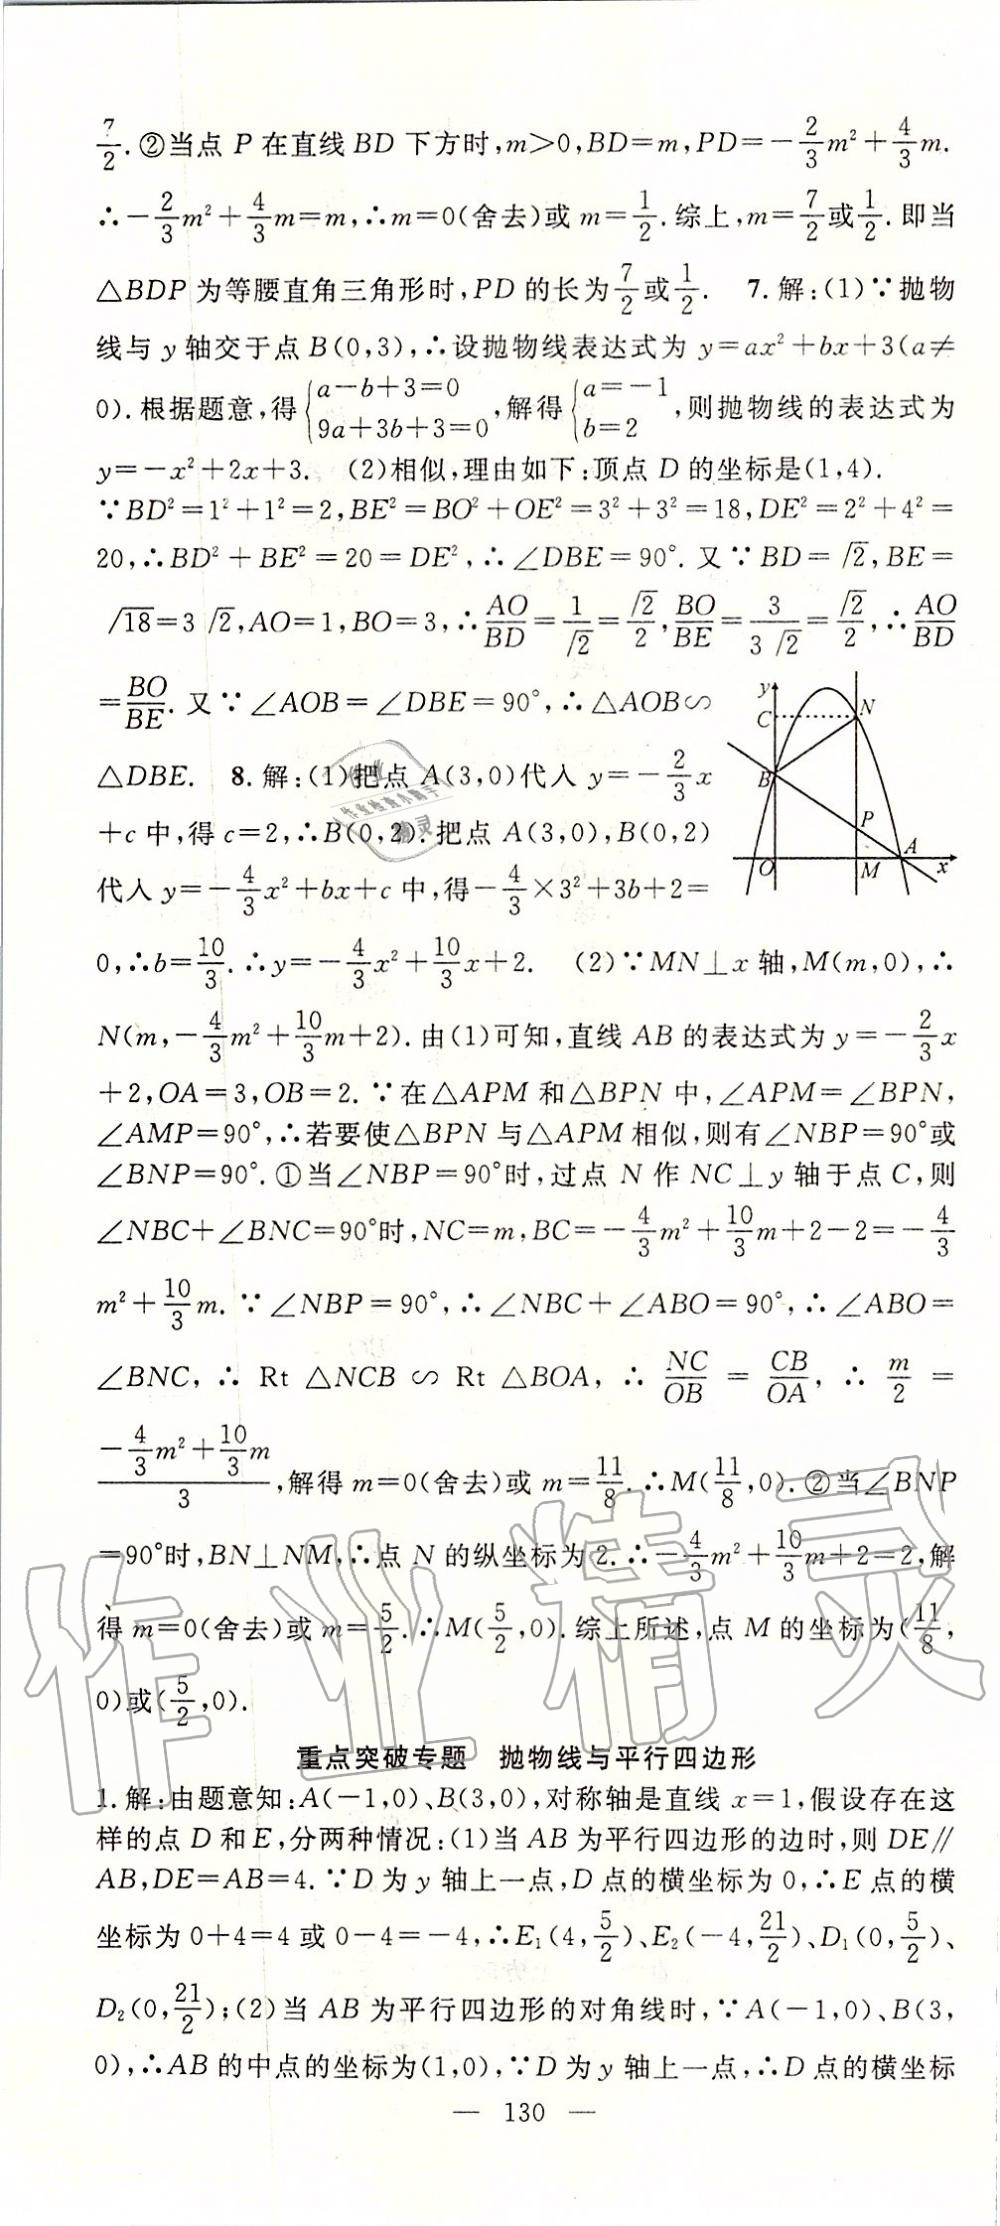 7/2.②当点 P 在直线 BD 下方时,m>0,BD=m,PD=-2/3m²+4/3m.
∴-2/3m²+4/3m=m,∴m=0(舍去)或 m=1/2.综上,m=7/2或1/2.即当
△BDP 为等腰直角三角形时,PD 的长为7/2或1/2. 7.解:(1)∵抛物
线与 y 轴交于点 B(0,3),∴设抛物线表达式为 y=ax²+bx+3(a≠
0).根据题意,得{a-b+3=0 9a+3b+3=0,解得{a=-1 b=2,则抛物线的表达式为
y=-x²+2x+3. (2)相似,理由如下:顶点 D 的坐标是(1,4).
∵BD²=1²+1²=2,BE²=BO²+OE²=3²+3²=18,DE²=2²+4²=
20,∴BD²+BE²=20=DE²,∴∠DBE=90°.又∵BD=√2,BE=
√18=3√2,AO=1,BO=3,∴AO/BD=1/√2=√2/2,BO/BE=3/3√2=√2/2,∴AO/BD
=BO/BE.又∵∠AOB=∠DBE=90°,∴△AOB∽
△DBE. 8.解:(1)把点 A(3,0)代入 y=-2/3x
+c 中,得 c=2,∴B(0,2).把点 A(3,0),B(0,2)
代入 y=-4/3x²+bx+c 中,得-4/3×3²+3b+2=
y
C
N
B
P
A
O
M
x
0,∴b=10/3.∴y=-4/3x²+10/3x+2. (2)∵MN⊥x 轴,M(m,0),∴
N(m,-4/3m²+10/3m+2).由(1)可知,直线 AB 的表达式为 y=-2/3x
+2,OA=3,OB=2.∵在△APM 和△BPN 中,∠APM=∠BPN,
∠AMP=90°,∴若要使△BPN 与△APM 相似,则有∠NBP=90°或
∠BNP=90°.①当∠NBP=90°时,过点 N 作 NC⊥y 轴于点 C,则
∠NBC+∠BNC=90°时,NC=m,BC=-4/3m²+10/3m+2-2=-4/3
m²+10/3m.∵∠NBP=90°,∴∠NBC+∠ABO=90°,∴∠ABO=
∠BNC,∴Rt△NCB∽Rt△BOA,∴NC/OB=CB/OA,∴m/2=
(-4/3m²+10/3m)/3,解得 m=0(舍去)或 m=11/8.∴M(11/8,0).②当∠BNP
=90°时,BN⊥NM,∴点 N 的纵坐标为2.∴-4/3m²+10/3m+2=2,解
得 m=0(舍去)或 m=5/2.∴M(5/2,0).综上所述,点 M 的坐标为(11/8,
0)或(5/2,0).
重点突破专题 抛物线与平行四边形
1.解:由题意知:A(-1,0)、B(3,0),对称轴是直线 x=1,假设存在这
样的点 D 和 E,分两种情况:(1)当 AB 为平行四边形的边时,则 DE∥
AB,DE=AB=4.∵D 为 y 轴上一点,D 点的横坐标为 0,∴E 点的横
坐标为 0+4=4 或 0-4=-4,∴E₁(4,5/2)、E₂(-4,21/2)、D₁(0,5/2)、
D₂(0,21/2);(2)当 AB 为平行四边形的对角线时,∵A(-1,0)、B(3,
0),∴AB 的中点的坐标为(1,0),∵D 为 y 轴上一点,∴D 点的横坐标
— 130 —
作业精灵